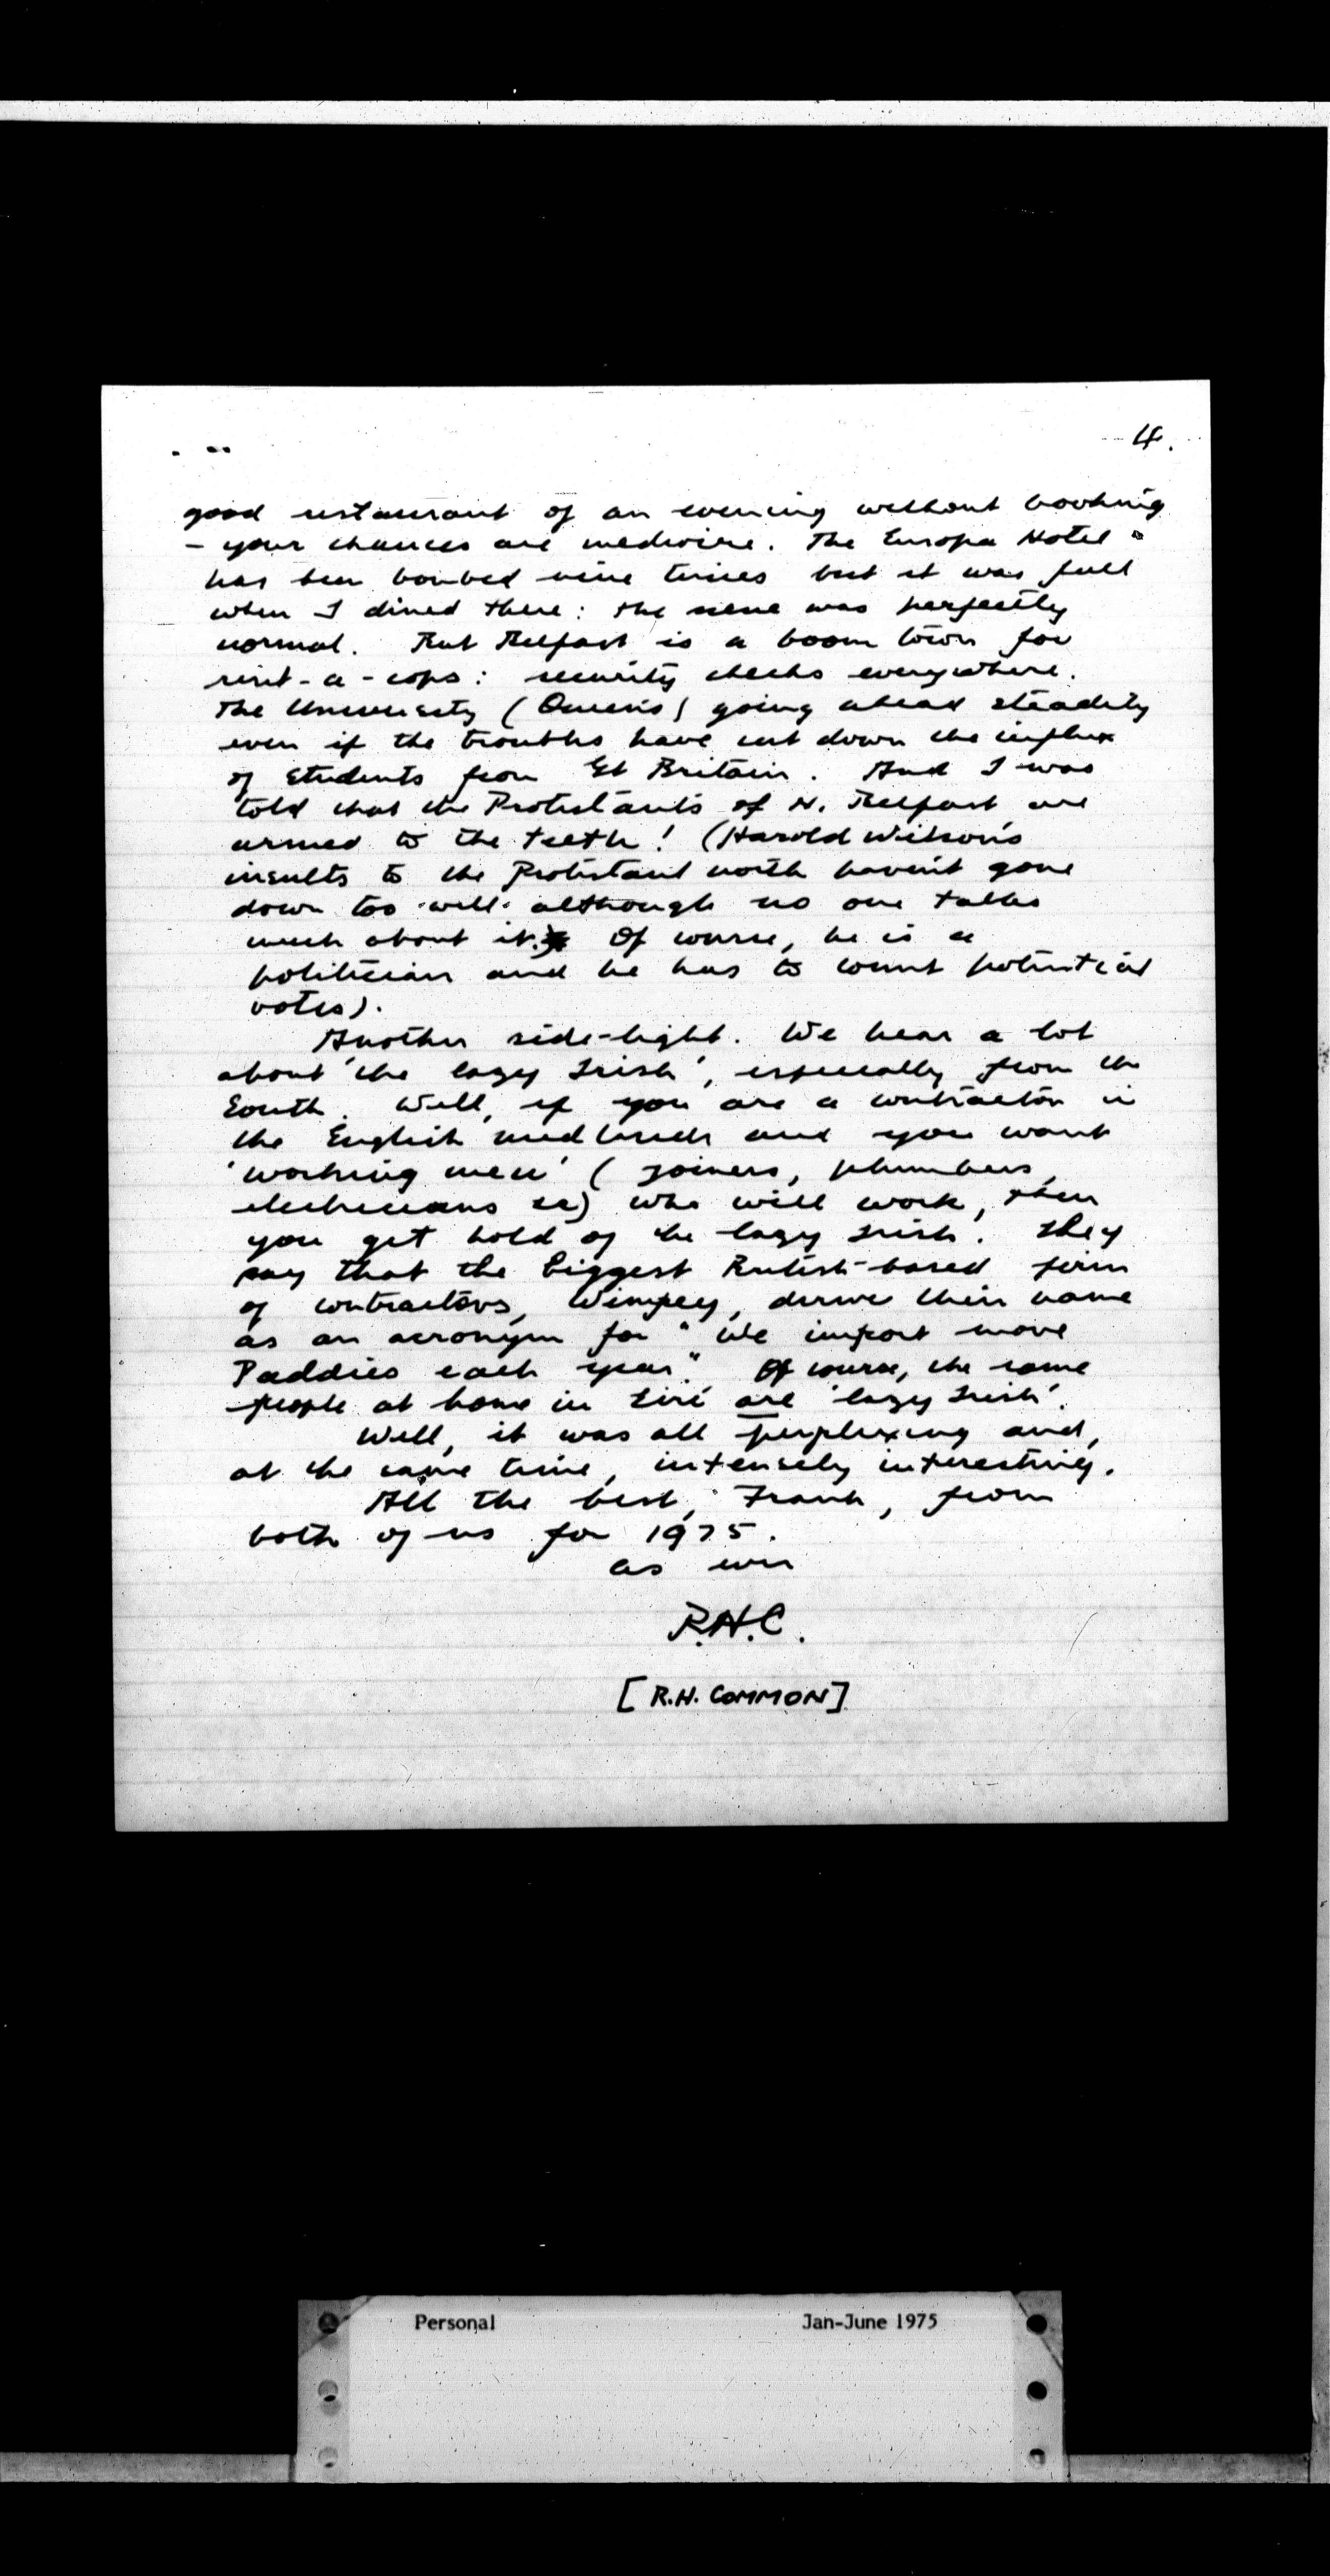 4.
good restaurant of an evening without booking
- your chances are mediocre. The Europa Hotel
has been bombed nine times but it was full
when I dined there: the scene was perfectly
normal. But Belfast is a boom town for
rent-a-cops: security checks everywhere.
The University (Queen's) going ahead steadily
even if the troubles have cut down the influx
of students from Gt Britain. And I was
told that the Protestants of N. Belfast are
armed to the teeth! (Harold Wilson's
insults to the Protestant north haven't gone
down too well although no one talks
much about it. Of course, he is a
politician and he has to count potential
votes).
Another side-light. We hear a lot
about 'the lazy Irish', especially from the
South. Well, if you are a contractor in
the English midlands and you want
'working men' (joiners, plumbers,
electricians etc) who will work, then
you get hold of the lazy Irish. They
say that the biggest British-based firm
of contractors, Wimpey, derive their name
as an acronym for "We import more
Paddies each year." Of course, the same
people at home in Eire are 'lazy Irish'.
Well, it was all perplexing and,
at the same time, intensely interesting.
All the best, Frank, from
both of us for 1975.
as ever
R.H.C.
[R.H. COMMON]
Personal Jan-June 1975